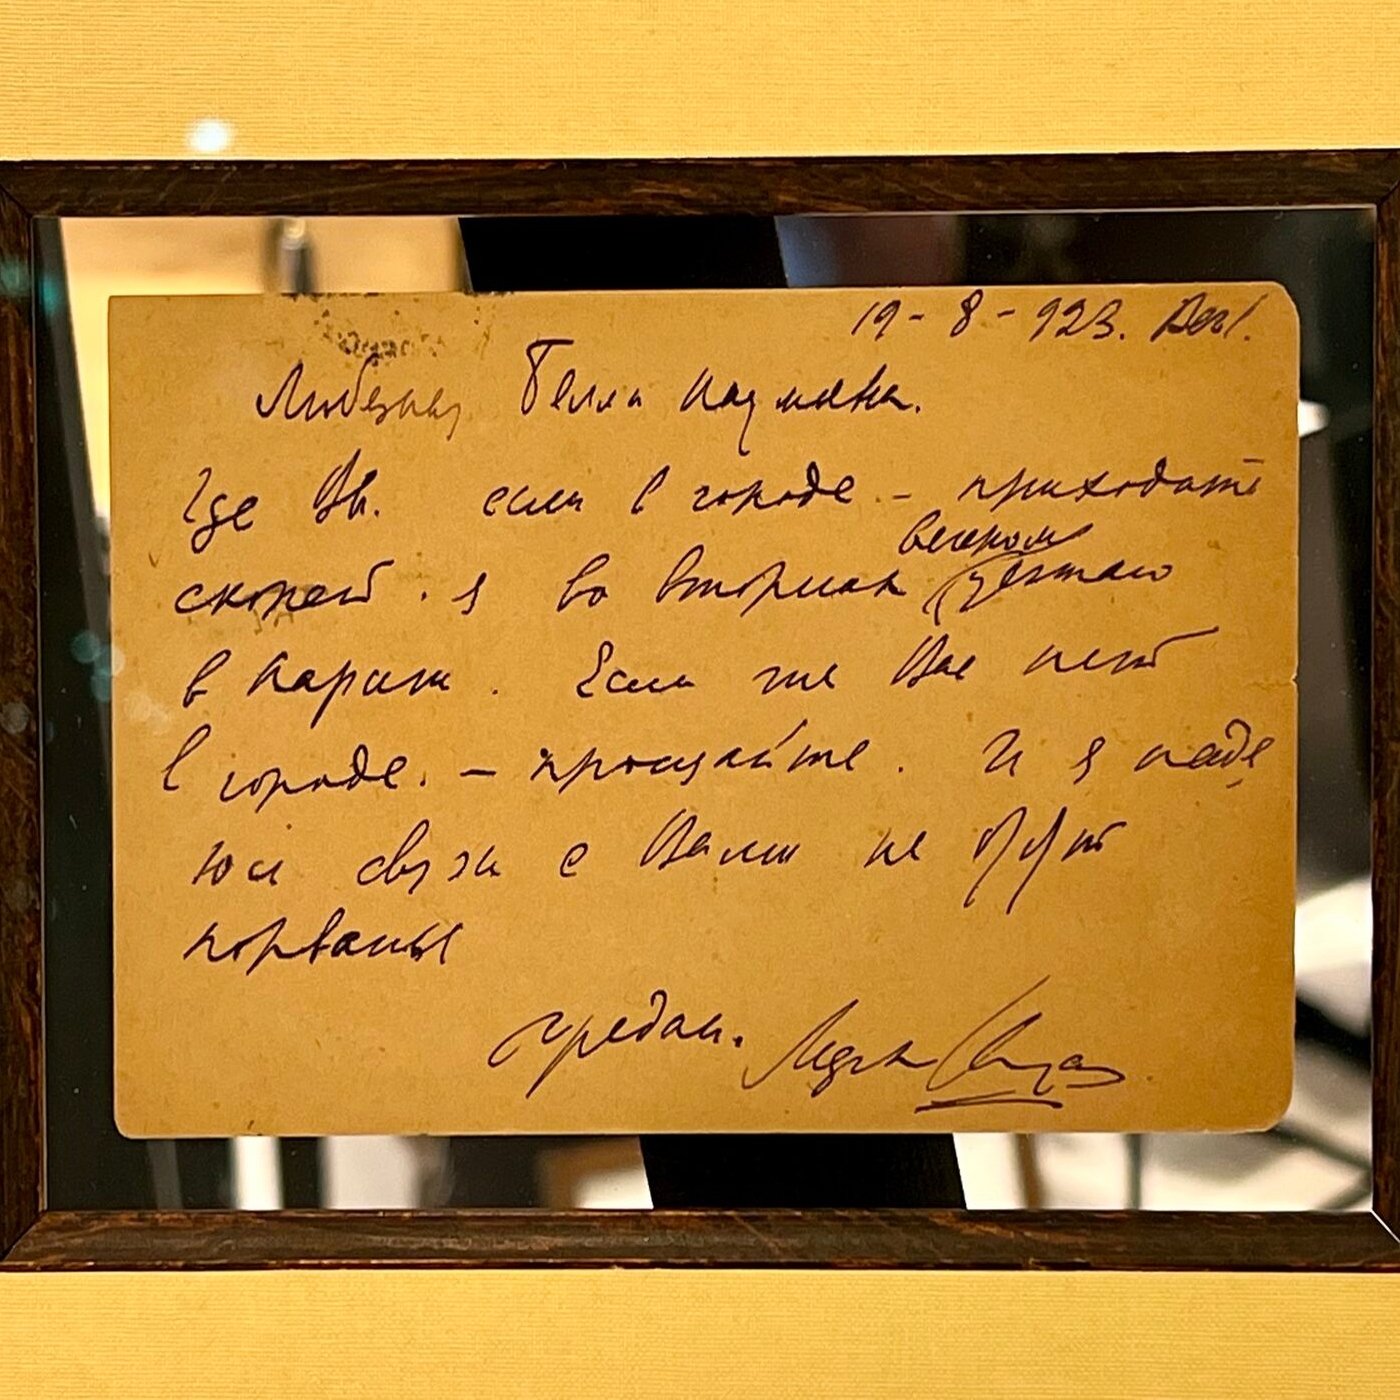 19-8-923. Berl.
Любезная Белла Наумовна.
Где Вы. если в городе – приходите
скорей. я во вторник вечером уезжаю
в Париж. Если же Вас нет
в городе. – прощайте. И я наде
юсь связи с Вами не будут
порваны
предан.